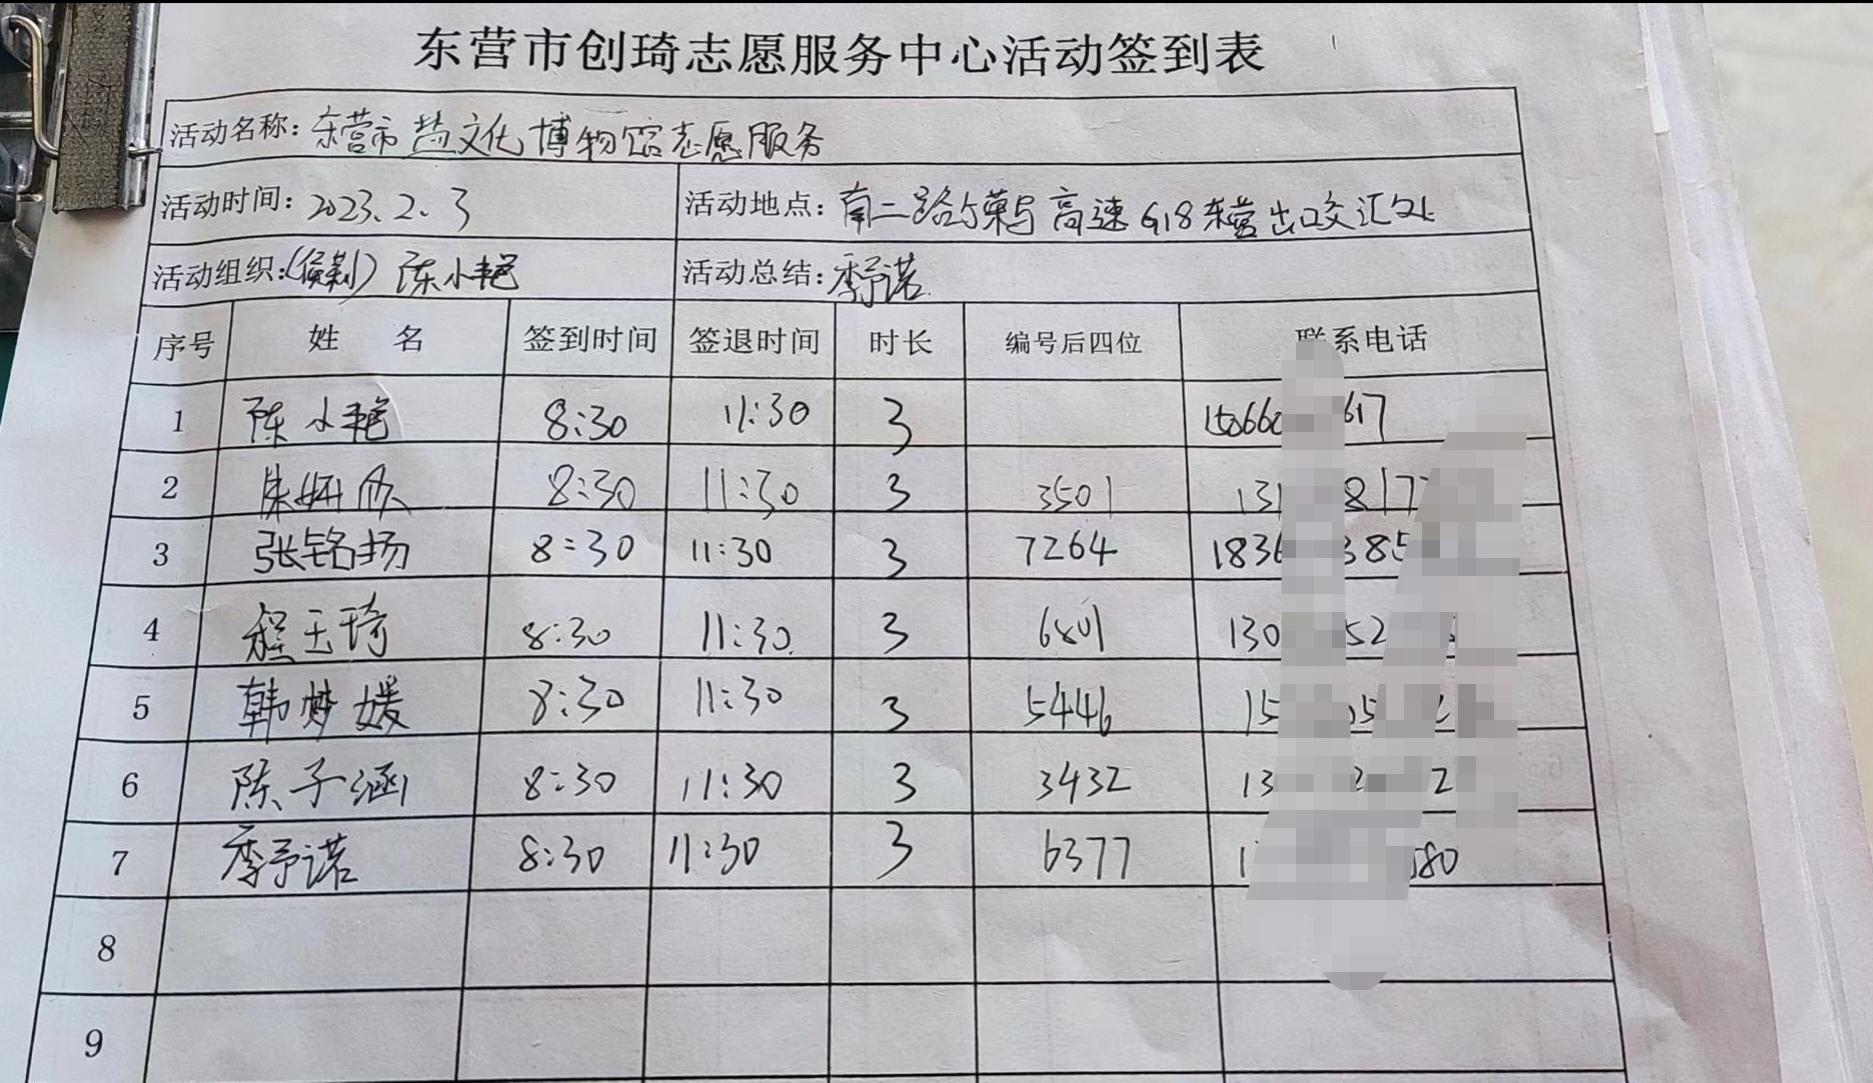 东营市创琦志愿服务中心活动签到表
活动名称：东营市盐文化博物馆志愿服务
活动时间：2023.2.3 活动地点：南二路与荣乌高速G18东营出口交汇处
活动组织：陈小艳 活动总结：季予诺
序号 姓 名 签到时间 签退时间 时长 编号后四位 联系电话
1 陈小艳 8:30 11:30 3 617
2 8:30 11:30 3 3501
3 张铭扬 8:30 11:30 3 7264 1836 385
4 程玉琦 8:30 11:30 3 6801 130 52
5 韩梦媛 8:30 11:30 3 5446 15 2
6 陈子涵 8:30 11:30 3 3432 13 2
7 季予诺 8:30 11:30 3 6377 1 580
8
9